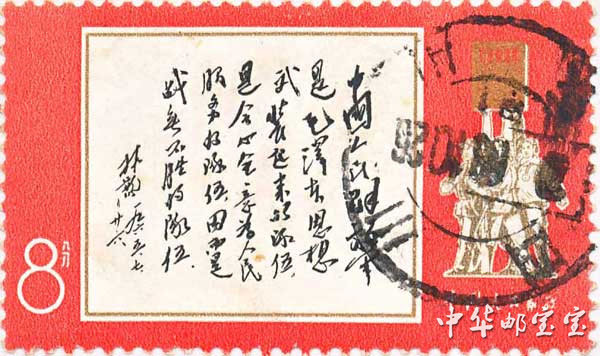 中國人民解放軍
是毛澤东思想
武裝起来的隊伍，
是全心全意为人民
服务的隊伍，因而是
战无不胜的隊伍。
林彪 一九六五.七.
廿六
8分
中华邮宝宝